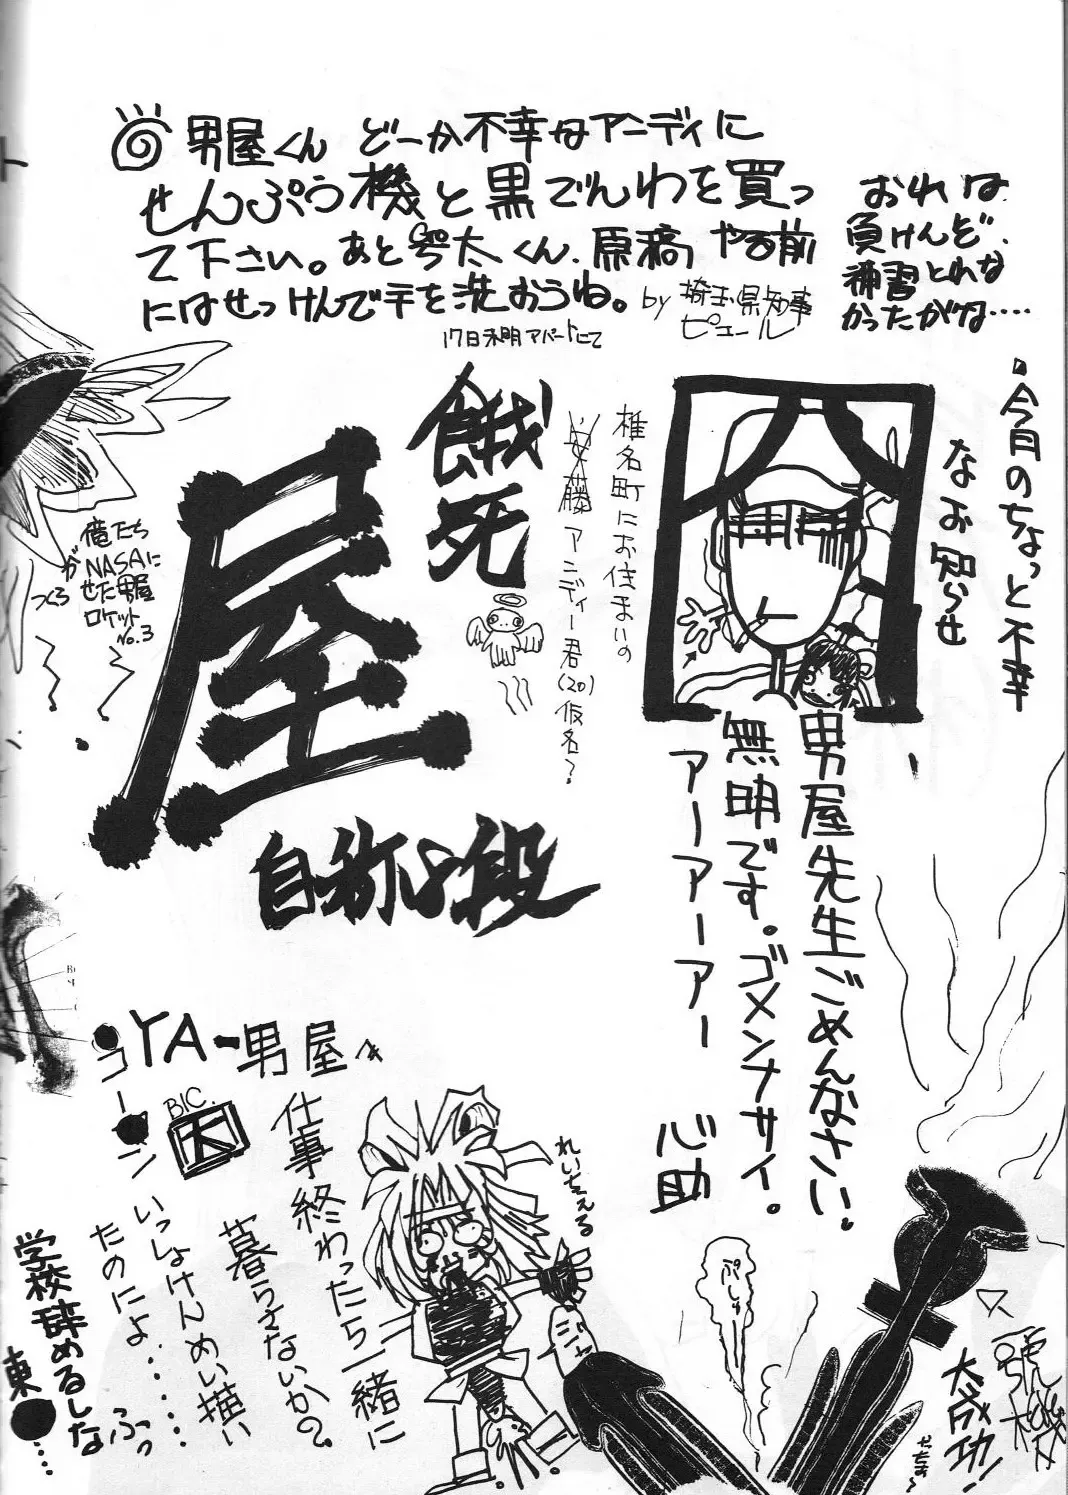 男屋くん どーか不幸なアニディに
せんぷう機と黒でんわを買っ
て下さい。あと雩太くん、原稿やる前
にはせっけんで手を洗おうね。
by 埼玉県知事
ピエール
17日未明アパートにて
おれは
負けんぞ、
補習とれな
かったがな‥‥
今月のちょっと不幸
なお知らせ
椎名町にお住まいの
安藤アニディー君(20)仮名?
餓死
屋
自称心段
俺たち
が
NASAに
つくら
せた男屋
ロケット
No.3
男屋先生ごめんなさい。
無明です。ゴメンナサイ。
アーアーアーアー
心助
YA-男屋へ
仕事終わったら一緒に
暮らさないか?
いっしょけんめい描い
たのによ‥‥‥
ふっ
●コー●ン
BIC.
学校辞めるしな
東●‥‥
れいちぇる
ジャ
ぷしゅ
大成功!